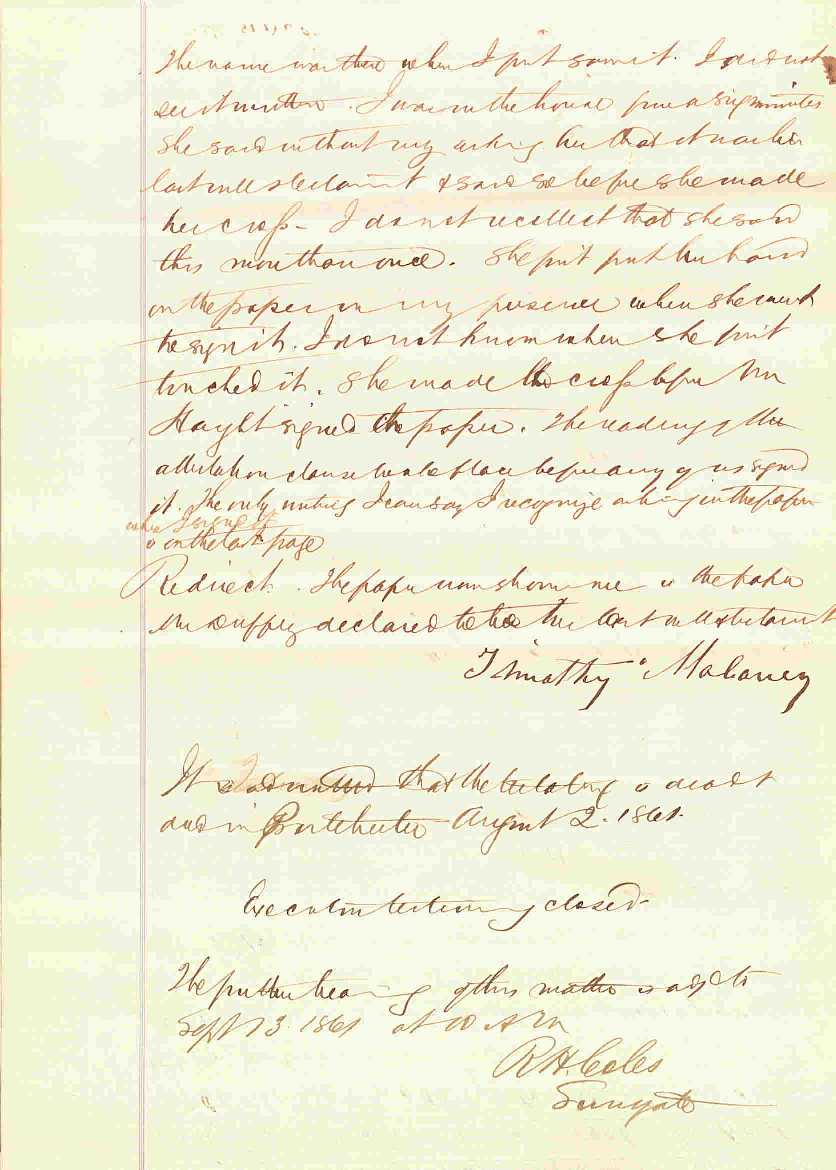 The name was there when I put some it. I did not
see it written. I was in the house five or six minutes
She said without my asking her that it was her
last will & testament & said so before she made
her cross - I do not recollect that she said
this more than once. She put her hand
on the paper in my presence when she went
to sign it. I do not know when she first
touched it. She made the cross before Mr
Hayht signed the paper. The reading of the
attestation clause took place before any of us signed
it. The only writing I can say I recognize as being in the paper
when I signed it
is on the last page
Redirect. The paper now shown me is the paper
Mrs Duffy declared to be her last will & testament
Timothy Maloney
It is admitted that the testatrix is dead &
died in Portchester August 2. 1861.
Executors testimony closed -
The further hearing of this matter is adjd to
Sept 13 1861 at 10 A M
R H Coles
Surrogate